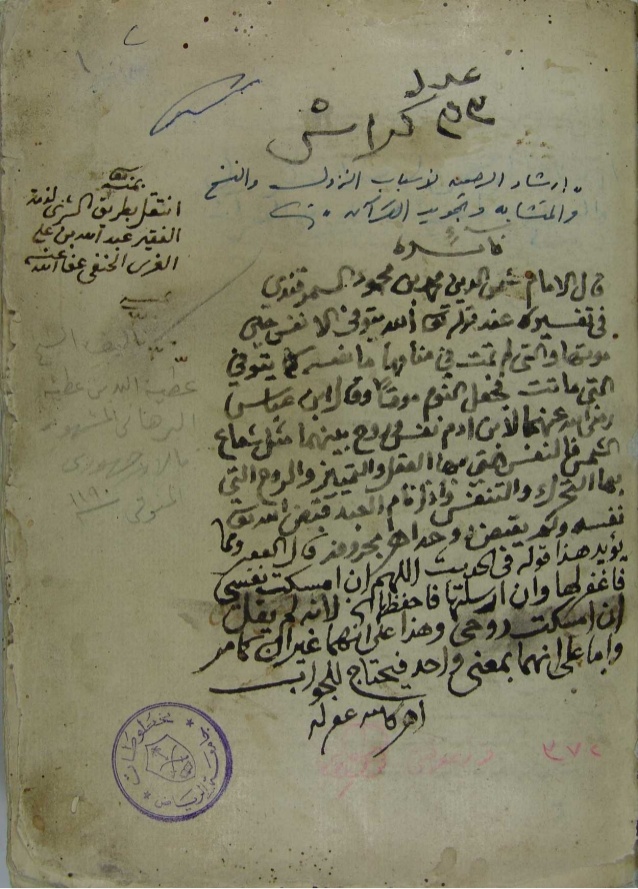 عدد
٥٣ كراس
إرشاد الرحمن لأسباب النزول والنسخ
والمتشابه وتجويد القرآن
بمنه
انتقل بطريق الشرى لنوبة
الفقير عبد الله بن علي
الغزي الحنفي عفا الله عنه
فائدة
قال الامام شمس الدين محمد بن محمود السمرقندي
في تفسيره عند قوله تعا الله يتوفى الانفس حين
موتها والتي لم تمت في منامها ما نفسه كما يتوفى
التي ماتت فجعل النوم موتا وقال ابن عباس
رضي الله عنهما لابن ادم نفس وروح بينهما مثل شعاع
الشمس فالنفس التي بها العقل والتمييز والروح التي
بها التحرك والتنفس واذا نام العبد قبض الله تع
نفسه ولم يقبض روحه اهر بحروفه قال الفقير ومما
يؤيد هذا قوله في الحديث اللهم ان امسكت نفسي
فاغفر لها وان ارسلتها فاحفظها الخ لانه لم يقل
ان امسكت روحي وهذا على انهما غيران كما مر
واما على انهما بمعنى واحد فيحتاج للجواب
اهر كاتبه
عطية الدين عطية
البرهاني المشهور
بالاجهوري
المتوفى ١١٩٠
٣٧٢
مخطوطات
الرياض